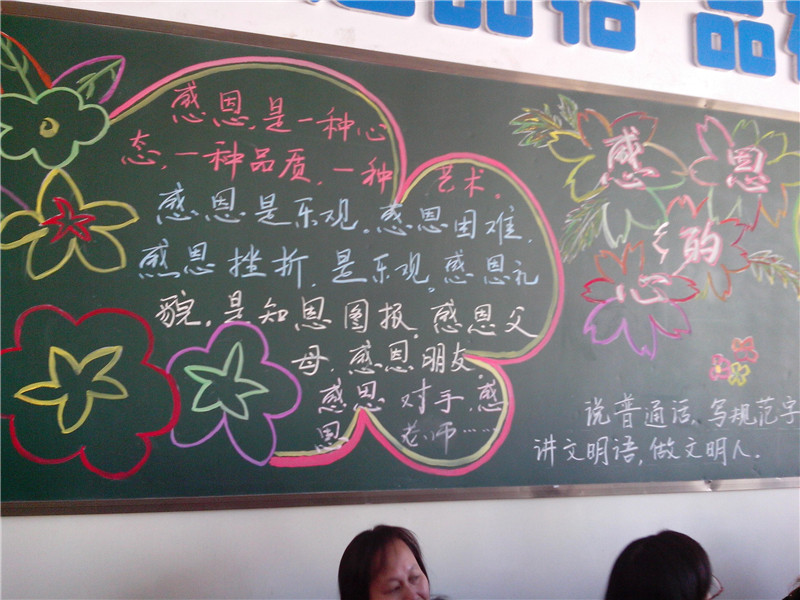 感恩,是一种心
态,一种品质,一种 艺术。
感恩是乐观。感恩困难,
感恩挫折,是乐观。感恩礼
貌,是知恩图报。感恩父
母,感恩朋友,
感恩 对手,感
恩 老师……
感恩
的
心
说普通话,写规范字
讲文明语,做文明人.